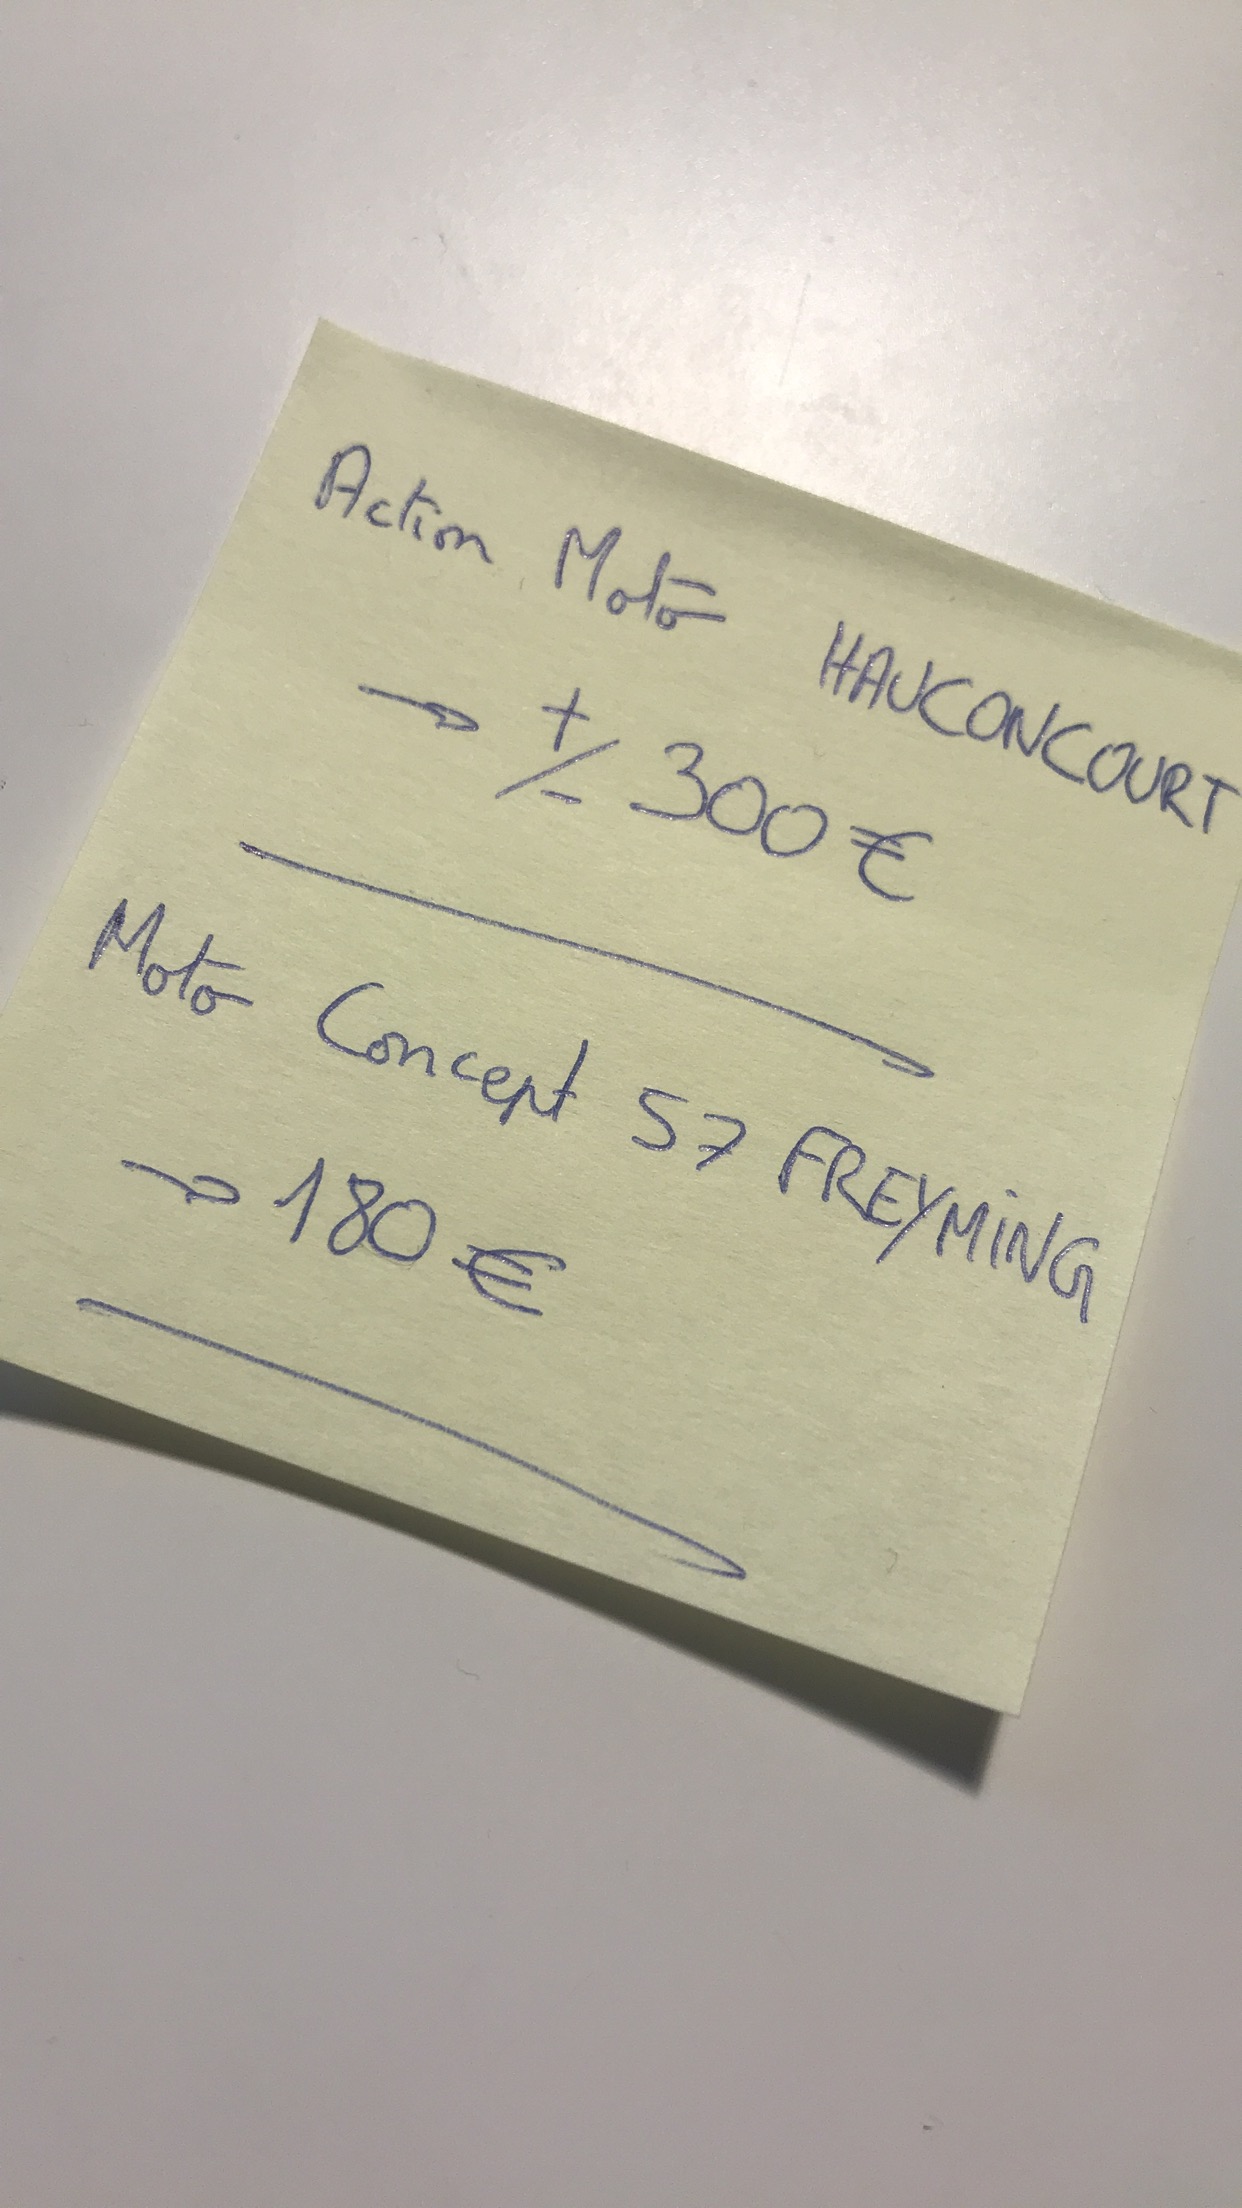 Action Moto HAUCONCOURT
→ +/- 300 €
Moto Concept 57 FREYMING
→ 180 €